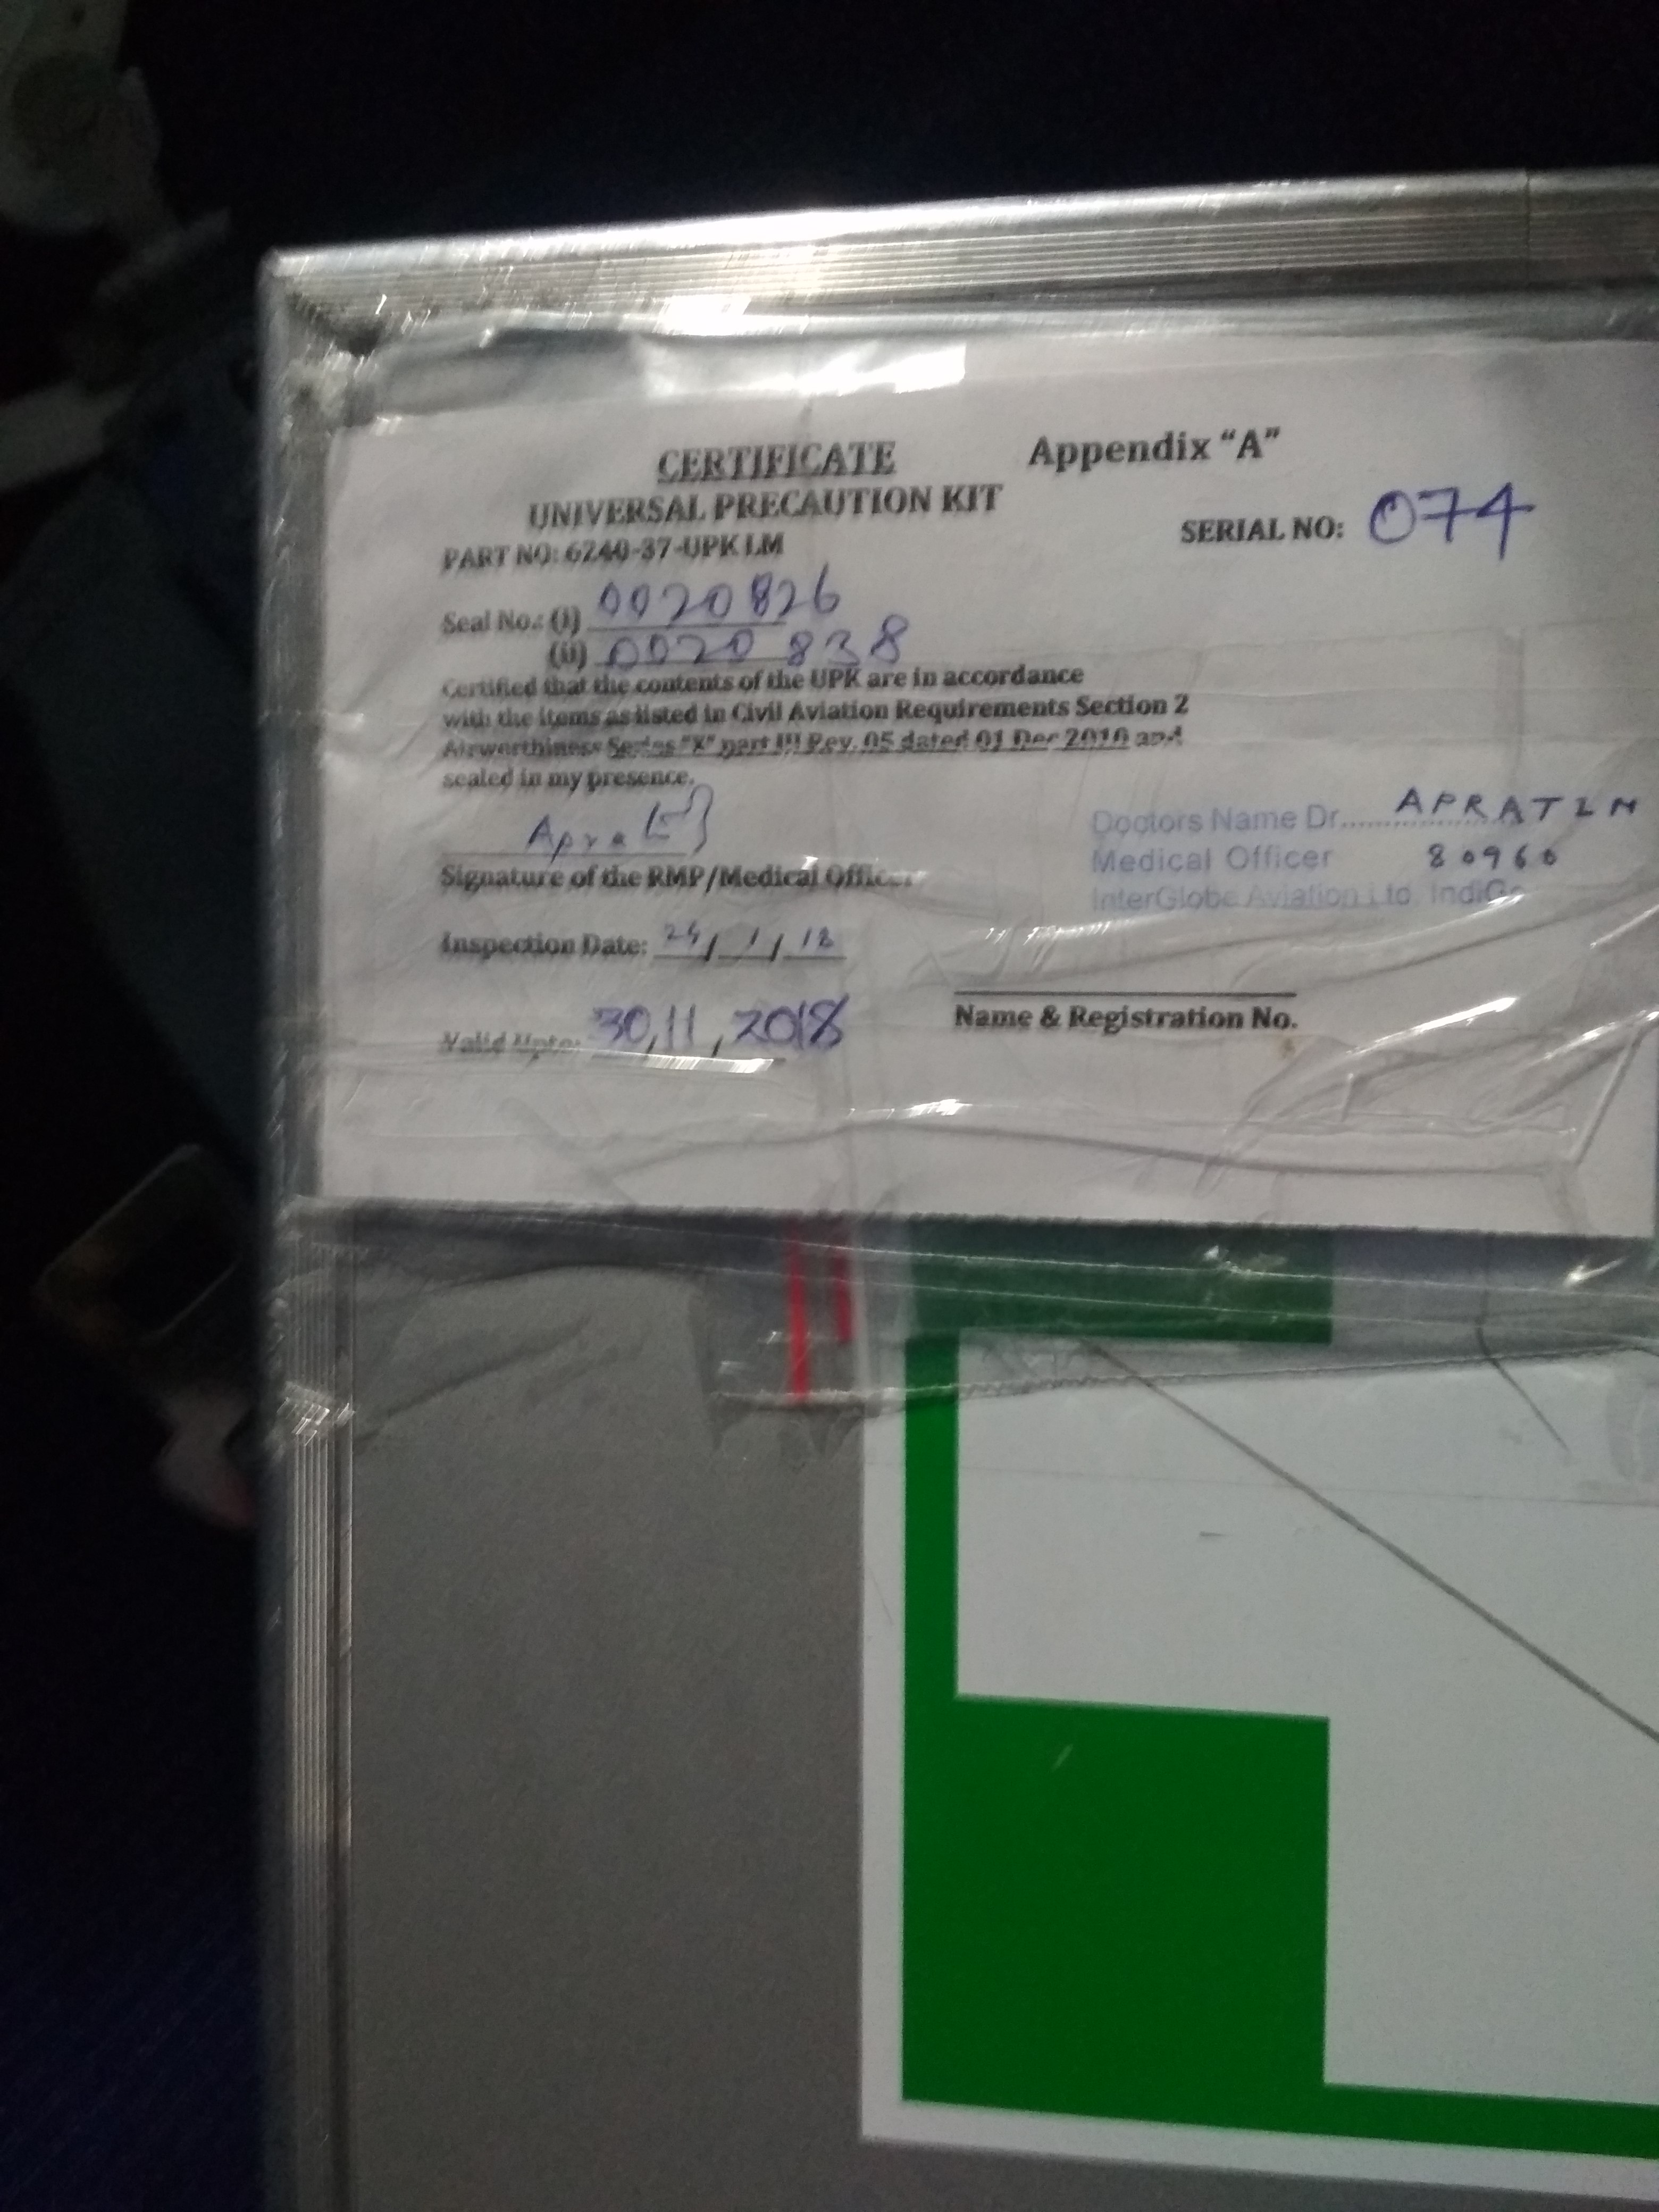 CERTIFICATE
Appendix "A"
UNIVERSAL PRECAUTION KIT
PART NO: 6240-37-UPK LM
SERIAL NO: 074
Seal No.: (i) 0020826
(ii) 0020838
Certified that the contents of the UPK are in accordance
with the items as listed in Civil Aviation Requirements Section 2
Airworthiness Series "X" part III Rev. 05 dated 01 Dec 2010 and
sealed in my presence.
Signature of the RMP/Medical Officer
Doctors Name Dr.
Medical Officer 80960
InterGlobe Aviation Ltd. IndiGo
Inspection Date: /1/18
Valid Upto: 30,11,2018
Name & Registration No.